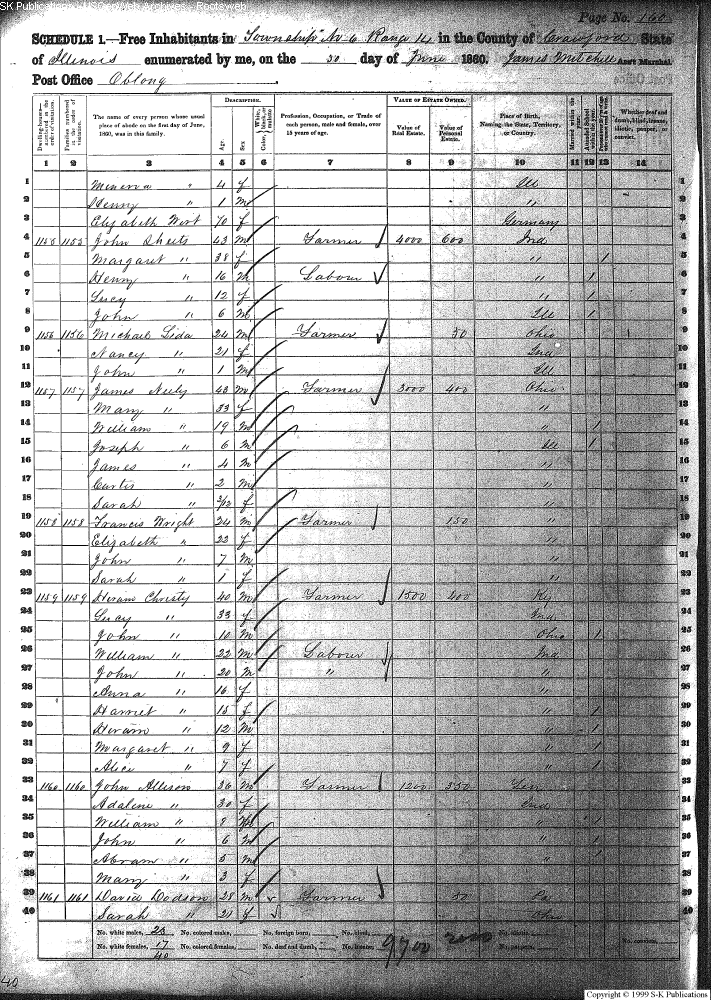 SK Publications
Page No. 160
SCHEDULE 1.—Free Inhabitants in Township No 6 Range 14 in the County of Crawford State
of Illinois enumerated by me, on the 30 day of June 1860. James Mitchell Ass't Marshal.
Post Office Oblong
DESCRIPTION. VALUE OF ESTATE OWNED.
Dwelling-houses—numbered in the order of visitation. Families numbered in the order of visitation. The name of every person whose usual place of abode on the first day of June, 1860, was in this family. Age. Sex. Color, White, black, or mulatto. Profession, Occupation, or Trade of each person, male and female, over 15 years of age. Value of Real Estate. Value of Personal Estate. Place of Birth, Naming the State, Territory, or Country. Married within the year. Attended School within the year. Whether deaf and dumb, blind, insane, idiotic, pauper, or convict.
1 2 3 4 5 6 7 8 9 10 11 12 13 14
1 Minerva " 4 f Ill 1
2 Henry " 1 m " 2
3 Elizabeth West 70 f Germany 3
4 1155 1155 John Sheets 43 m Farmer 4000 600 Ind 4
5 Margaret " 38 f " 1 5
6 Henry " 16 m Labour " 1 6
7 Lucy " 12 f " 1 7
8 John " 6 m Ill 1 8
9 1156 1156 Michael Lida 24 m Farmer 50 Ohio 1 9
10 Nancy " 21 f Ind 10
11 John " 1 m Ill 11
12 1157 1157 James Neely 43 m Farmer 3000 400 Ohio 12
13 Mary " 33 f " 13
14 William " 19 m " 1 14
15 Joseph " 6 m Ill 1 15
16 James " 4 m " 16
17 Curtis " 2 m " 17
18 Sarah " 3/12 f " 18
19 1158 1158 Francis Wright 24 m Farmer 150 " 19
20 Elizabeth " 22 f " 20
21 John " 7 m " 21
22 Sarah " 1 f " 22
23 1159 1159 Hiram Christy 40 m Farmer 1500 400 Ky 23
24 Lucy " 33 f Ind 24
25 John " 10 m Ohio 1 25
26 William " 22 m Labour Ind 26
27 John " 20 m " " 27
28 Anna " 16 f " 28
29 Harriet " 15 f " 1 29
30 Hiram " 12 m " 1 30
31 Margaret " 9 f " 1 31
32 Alice " 7 f " 1 32
33 1160 1160 John Allison 36 m Farmer 1200 350 Ten 33
34 Adaline " 30 f Ind 34
35 William " 8 m " 1 35
36 John " 6 m " 1 36
37 Abram " 5 m " 1 37
38 Mary " 3 f " 38
39 1161 1161 David Dodson 28 m Farmer 50 Pa 39
40 Sarah " 21 f Ohio 40
No. white males, 23 No. colored males, No. foreign born, No. blind,
No. white females, 17 No. colored females, No. deaf and dumb, No. insane, 9700 No. convicts,
40
Copyright © 1999 S-K Publications